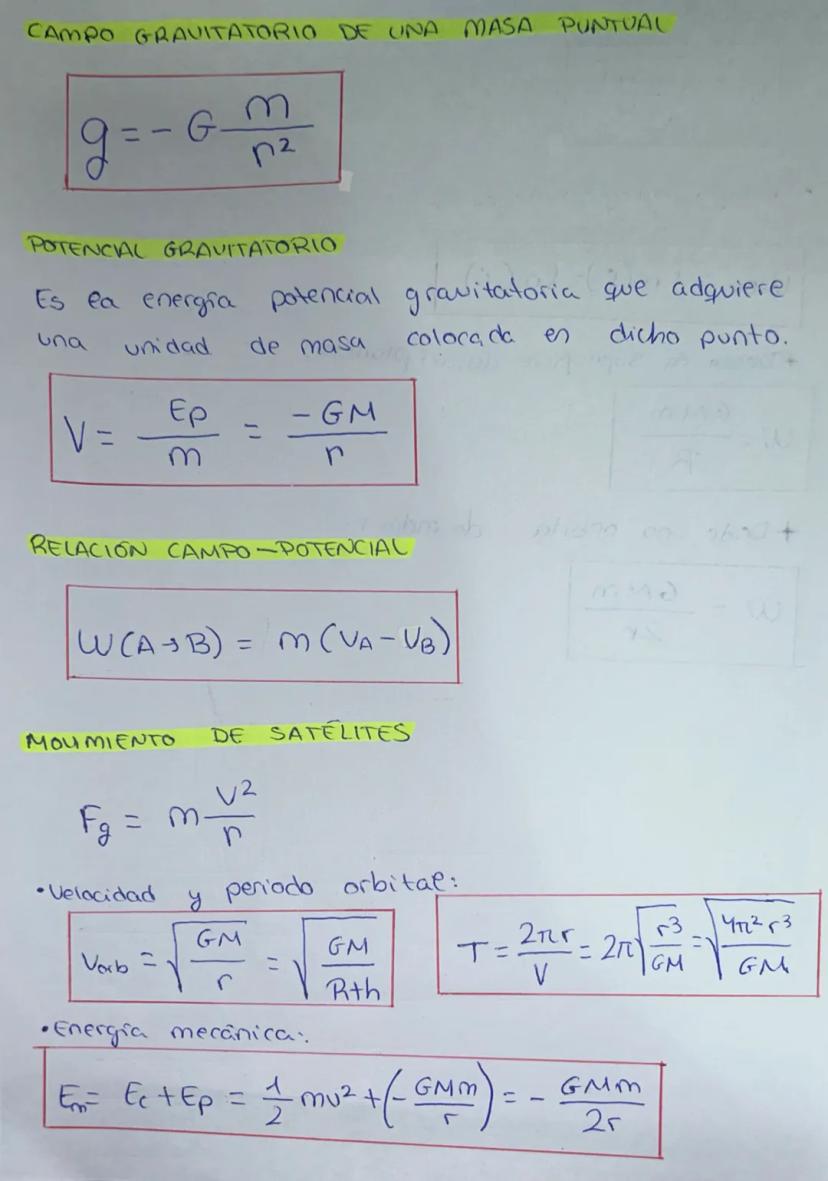 CAMPO GRAVITATORIO DE UNA MASA PUNTUAL
g = - G m/r²
POTENCIAL GRAVITATORIO
Es la energía potencial gravitatoria que adquiere
una unidad de masa colocada en dicho punto.
V = Ep/m = -GM/r
RELACIÓN CAMPO-POTENCIAL
W(A→B) = m(VA - VB)
MOVIMIENTO DE SATÉLITES
Fg = m v²/r
•Velocidad y periodo orbital:
Vorb = √(GM/r) = √(GM/R+h)
T = 2πr/V = 2π√(r³/GM) = √(4π²r³/GM)
•Energía mecánica:
Em = Ec + Ep = 1/2 mv² + (-GMm/r) = - GMm/2r